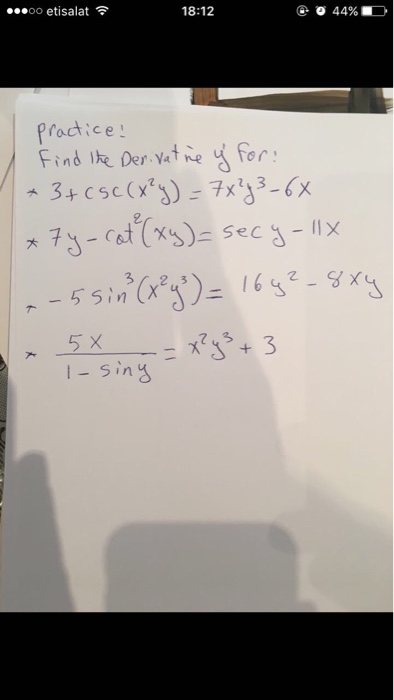 etisalat 18:12 44%
Practice!
Find the Derivative y' for:
* 3+csc(x²y) = 7x²y³-6x
* 7y-cot²(xy) = sec y-11x
* -5 sin³(x²y³) = 16y²-8xy
* 5x / 1-sin y = x²y³+3